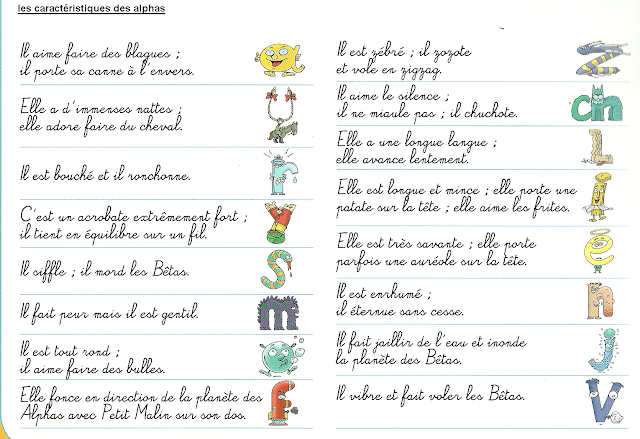 les caractéristiques des alphas
Il aime faire des blagues ;
il porte sa canne à l'envers.
Elle a d'immenses nattes ;
elle adore faire du cheval.
Il est bouché et il ronchonne.
C'est un acrobate extrêmement fort ;
il tient en équilibre sur un fil.
Il siffle ; il mord les Bêtas.
Il fait peur mais il est gentil.
Il est tout rond ;
il aime faire des bulles.
Elle fonce en direction de la planète des
Alphas avec Petit Malin sur son dos.
Il est zébré ; il zozote
et vole en zigzag.
Il aime le silence ;
il ne miaule pas ; il chuchote.
ch
Elle a une longue langue ;
elle avance lentement.
Elle est longue et mince ; elle porte une
patate sur la tête ; elle aime les frites.
Elle est très savante ; elle porte
parfois une auréole sur la tête.
Il est enrhumé ;
il éternue sans cesse.
Il fait jaillir de l'eau et inonde
la planète des Bêtas.
Il vibre et fait voler les Bêtas.